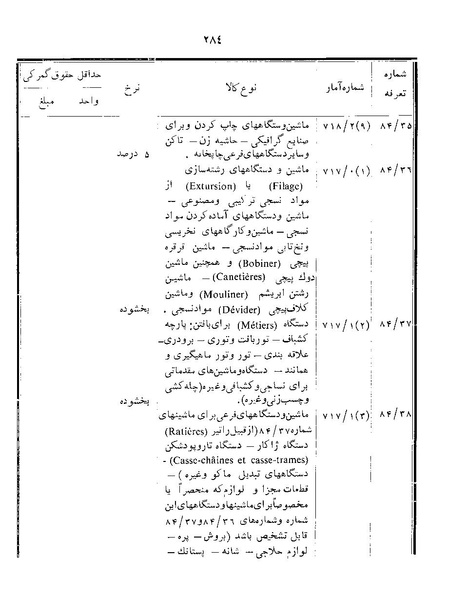 ۲۸٤
شماره تعرفه
شماره آمار
نوع کالا
نرخ
حداقل حقوق گمرکی
واحد مبلغ
۸۴/۳۵ ۷۱۸/۲(۹) ماشین و دستگاههای چاپ کردن و برای
صنایع گرافیکی – حاشیه زن – تاکن
و سایر دستگاههای فرعی چاپخانه . ۵ درصد
۸۴/۳۶ ۷۱۷/۰(۱) ماشین و دستگاههای رشته‌سازی
(Filage) یا (Extursion) از
مواد نسجی ترکیبی و مصنوعی –
ماشین و دستگاههای آماده کردن مواد
نسجی – ماشین و کارگاههای نخریسی
و نخ‌تابی مواد نسجی – ماشین قرقره
پیچی (Bobiner) و همچنین ماشین
دوك پیچی (Canetières) – ماشین
رشتن ابریشم (Mouliner) و ماشین
کلاف‌پیچی (Dévider) مواد نسجی . بخشوده
۸۴/۳۷ ۷۱۷/۱(۲) دستگاه (Métiers) برای بافتن: پارچه
کشباف – تور بافت و توری – برودری–
علاقه بندی – تور و تور ماهیگیری و
همانند – دستگاه و ماشین‌های مقدماتی
برای نساجی و کشبافی و غیره (چله‌کشی
و چسب‌زنی و غیره). بخشوده
۸۴/۳۸ ۷۱۷/۱(۳) ماشین و دستگاههای فرعی برای ماشینهای
شماره ۸۴/۳۷ (از قبیل راتیر (Ratières)
دستگاه ژاکار – دستگاه تار و پود شکن
(Casse-chaînes et casse-trames) -
دستگاههای تبدیل ماکو و غیره) –
قطعات مجزا و لوازم که منحصراً یا
مخصوصاً برای ماشینها و دستگاههای این
شماره و شماره‌های ۸۴/۳۶ و ۸۴/۳۷
قابل تشخیص باشد (بروش – پره –
لوازم حلاجی – شانه – پستانك –